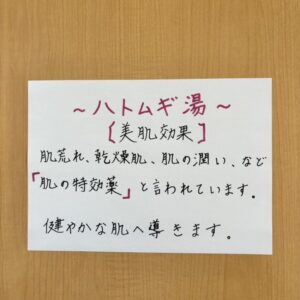 ～ハトムギ湯～
[美肌効果]
肌荒れ、乾燥肌、肌の潤い、など
「肌の特効薬」と言われています。
健やかな肌へ導きます。